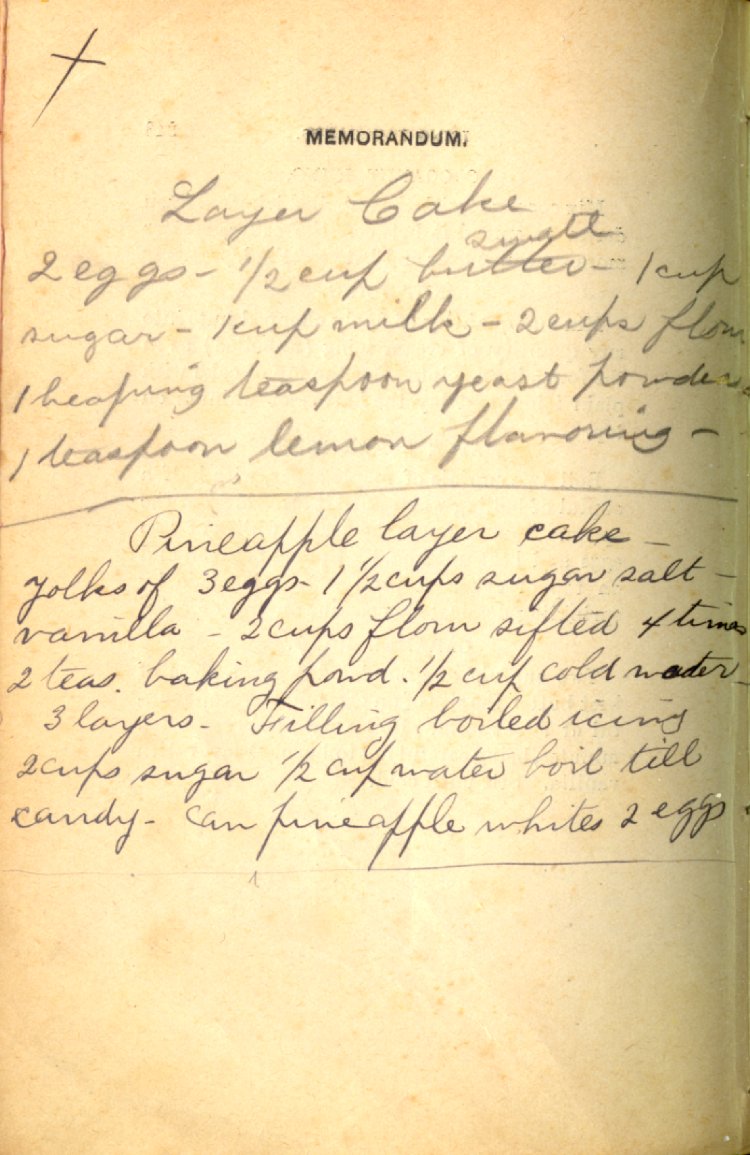 MEMORANDUM.
Layer Cake
2 eggs - 1/2 cup butter - 1 cup
sugar - 1 cup milk - 2 cups flour
1 heaping teaspoon yeast powders
1 teaspoon lemon flavoring -
Pineapple layer cake -
yolks of 3 eggs - 1 1/2 cups sugar salt -
vanilla - 2 cups flour sifted 4 times
2 teas. baking powd. 1/2 cup cold water -
3 layers - Filling boiled icing
2 cups sugar 1/2 cup water boil till
candy - can pineapple whites 2 eggs -